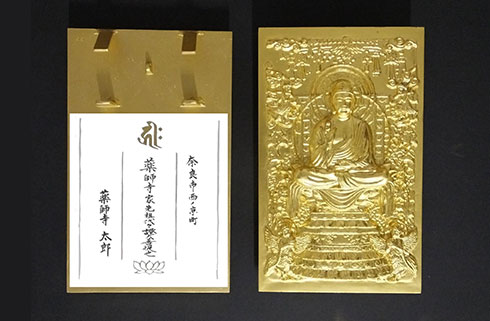 奈良市西ノ京町
薬師寺家先祖代々
薬師寺 太郎